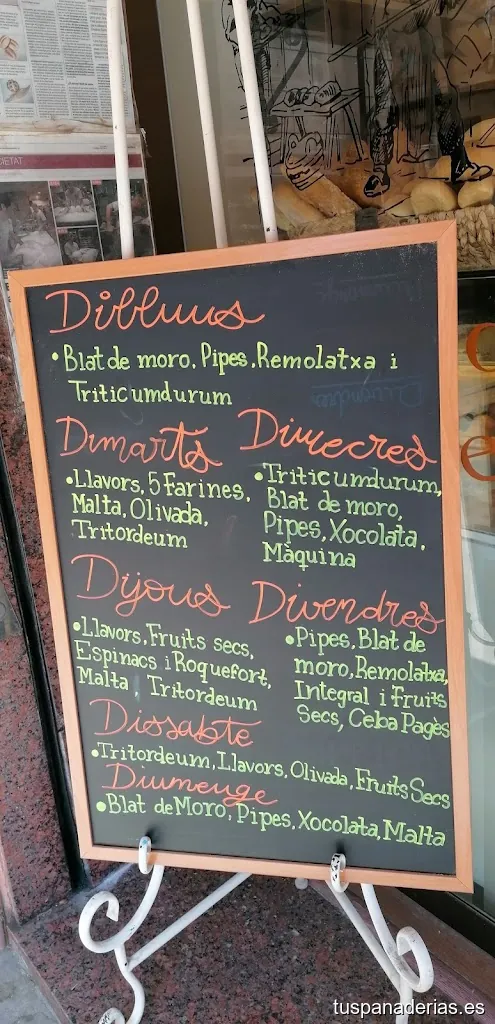 IETAT
Dilluns
•Blat de moro, Pipes, Remolatxa i
Triticumdurum
Dimarts
•Llavors, 5 Farines,
Malta, Olivada,
Tritordeum
Dimecres
•Triticumdurum,
Blat de moro,
Pipes, Xocolata,
Màquina
Dijous
•Llavors, Fruits secs,
Espinacs i Roquefort,
Malta Tritordeum
Divendres
•Pipes, Blat de
moro, Remolatxa,
Integral i Fruits
Secs, Ceba Pagès
Dissabte
•Tritordeum, Llavors, Olivada, Fruits Secs
Diumenge
•Blat de Moro, Pipes, Xocolata, Malta
tuspanaderias.es